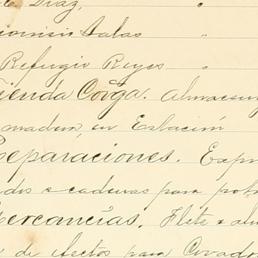 Diaz, "
Dionisio Salas "
Refugio Reyes "
Tienda Covga. Almacenaj
en Estación
Reparaciones. Exp
y cadenas para
Mercancías. Flete y al
de efectos para Covado